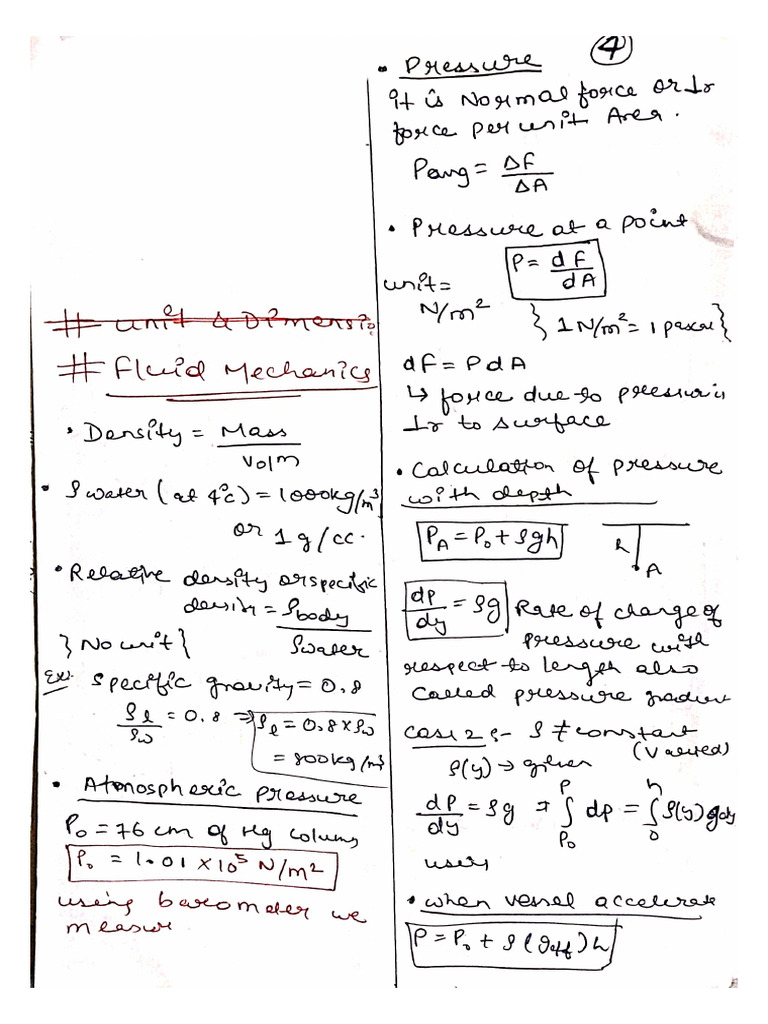 # Unit & Dimensio
# Fluid Mechanics
• Density = Mass / Volm
• ρwater (at 4°c) = 1000kg/m³
or 1g/cc.
• Relative density or specific
density = ρbody / ρwater
} No unit {
Ex:- Specific gravity = 0.8
ρl/ρw = 0.8 ⇒ ρl = 0.8 × ρw
= 800kg/m³
• Atmospheric pressure
P₀ = 76 cm of Hg column,
P₀ = 1.01 × 10⁵ N/m²
using barometer we
measur
④
• Pressure
it is Normal force or ⊥r
force per unit Area.
Pavg = ΔF/ΔA
• Pressure at a point
P = dF/dA
unit =
N/m²
} 1 N/m² = 1 pascal }
dF = P dA
↳ force due to pressur is
⊥r to surface
• Calculation of pressure
with depth
P_A = P₀ + ρgh
h
A
dp/dy = ρg Rate of change of
pressure with
respect to length also
called pressure gradient
case 2 :- ρ ≠ constant
(Varied)
ρ(y) → given
dP/dy = ρg ⇒ ∫_{P₀}^{P} dp = ∫_{0}^{h} ρ(y) g dy
• when vessel accelerate
P = P₀ + ρ(geff)h